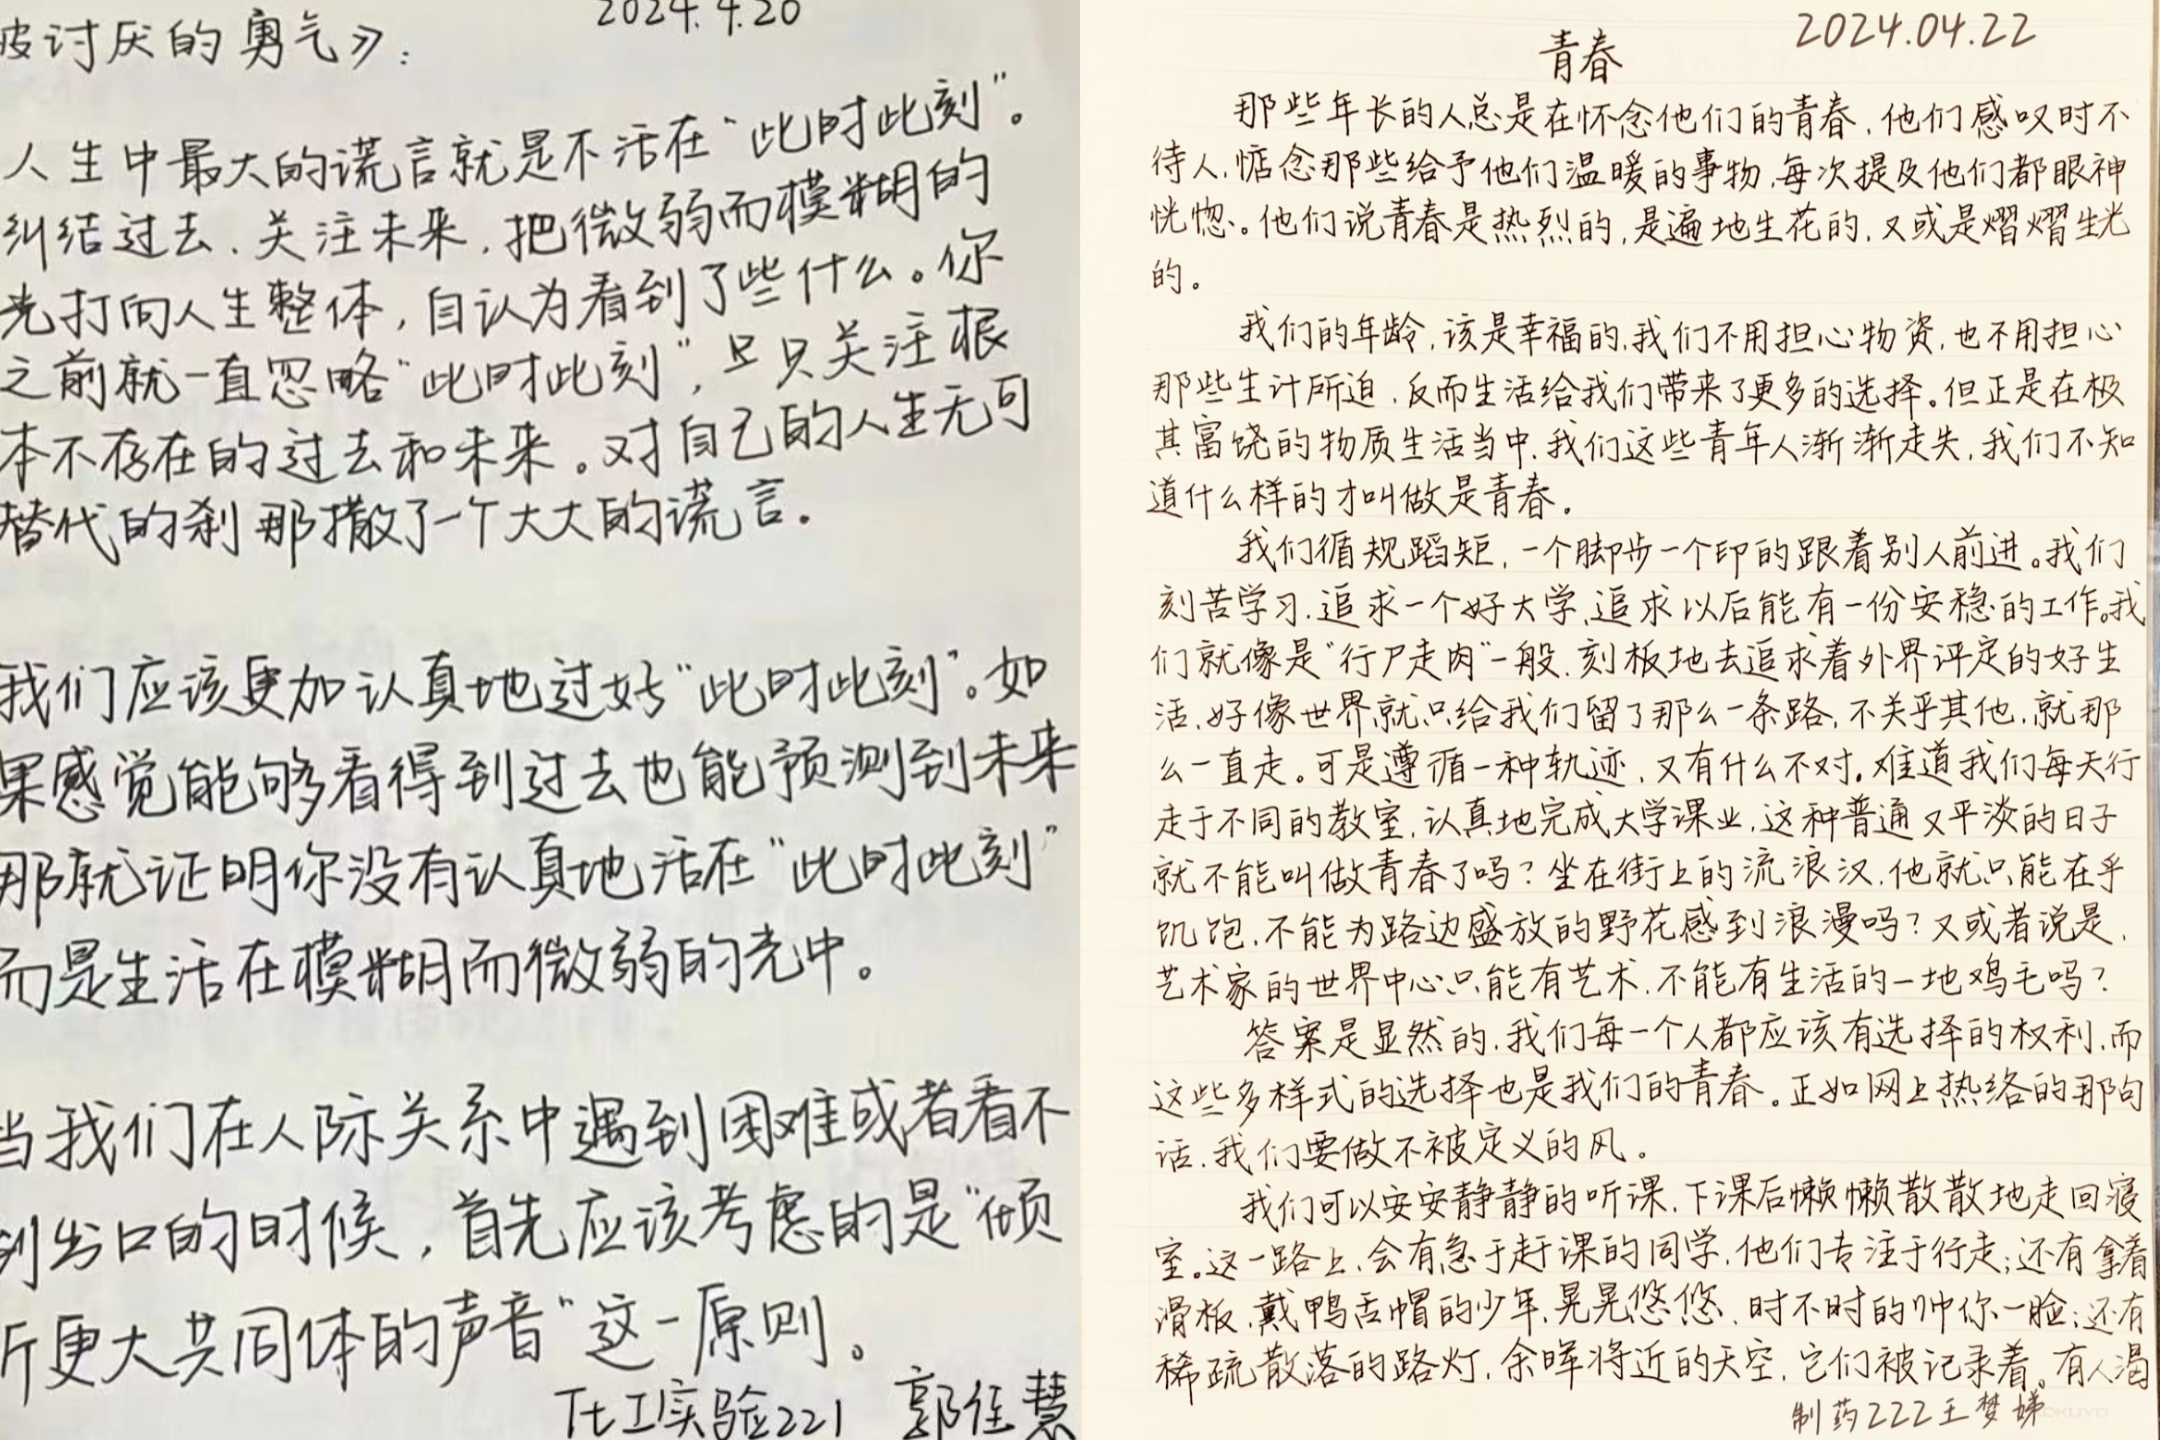 2024.4.20
被讨厌的勇气》:
人生中最大的谎言就是不活在“此时此刻”。
纠结过去、关注未来,把微弱而模糊的
光打向人生整体,自认为看到了些什么。你
之前就一直忽略“此时此刻”,只关注根
本不存在的过去和未来。对自己的人生无可
替代的刹那撒了一个大大的谎言.
我们应该更加认真地过好“此时此刻”。如
果感觉能够看得到过去也能预测到未来
那就证明你没有认真地活在“此时此刻”
而是生活在模糊而微弱的光中。
当我们在人际关系中遇到困难或者看不
到出口的时候,首先应该考虑的是“倾
听更大共同体的声音”这一原则。
化工实验221 郭佳慧
2024.04.22
青春
那些年长的人总是在怀念他们的青春,他们感叹时不
待人,惦念那些给予他们温暖的事物,每次提及他们都眼神
恍惚。他们说青春是热烈的,是遍地生花的,又或是熠熠生光
的。
我们的年龄,该是幸福的,我们不用担心物资,也不用担心
那些生计所迫,反而生活给我们带来了更多的选择。但正是在极
其富饶的物质生活当中,我们这些青年人渐渐走失,我们不知
道什么样的才叫做是青春。
我们循规蹈矩,一个脚步一个印的跟着别人前进。我们
刻苦学习,追求一个好大学,追求以后能有一份安稳的工作。我
们就像是“行尸走肉”一般,刻板地去追求着外界评定的好生
活,好像世界就只给我们留了那么一条路,不关乎其他,就那
么一直走。可是遵循一种轨迹,又有什么不对。难道我们每天行
走于不同的教室,认真地完成大学课业,这种普通又平淡的日子
就不能叫做青春了吗?坐在街上的流浪汉,他就只能在乎
饥饱,不能为路边盛放的野花感到浪漫吗?又或者说是,
艺术家的世界中心只能有艺术,不能有生活的一地鸡毛吗?
答案是显然的,我们每一个人都应该有选择的权利,而
这些多样式的选择也是我们的青春。正如网上热络的那句
话,我们要做不被定义的风。
我们可以安安静静的听课,下课后懒懒散散地走回寝
室。这一路上,会有急于赶课的同学,他们专注于行走;还有拿着
滑板,戴鸭舌帽的少年,晃晃悠悠,时不时的帅你一脸;还有
稀疏散落的路灯,余晖将近的天空,它们被记录着。有人渴
制药222王梦娣
KOKUYO